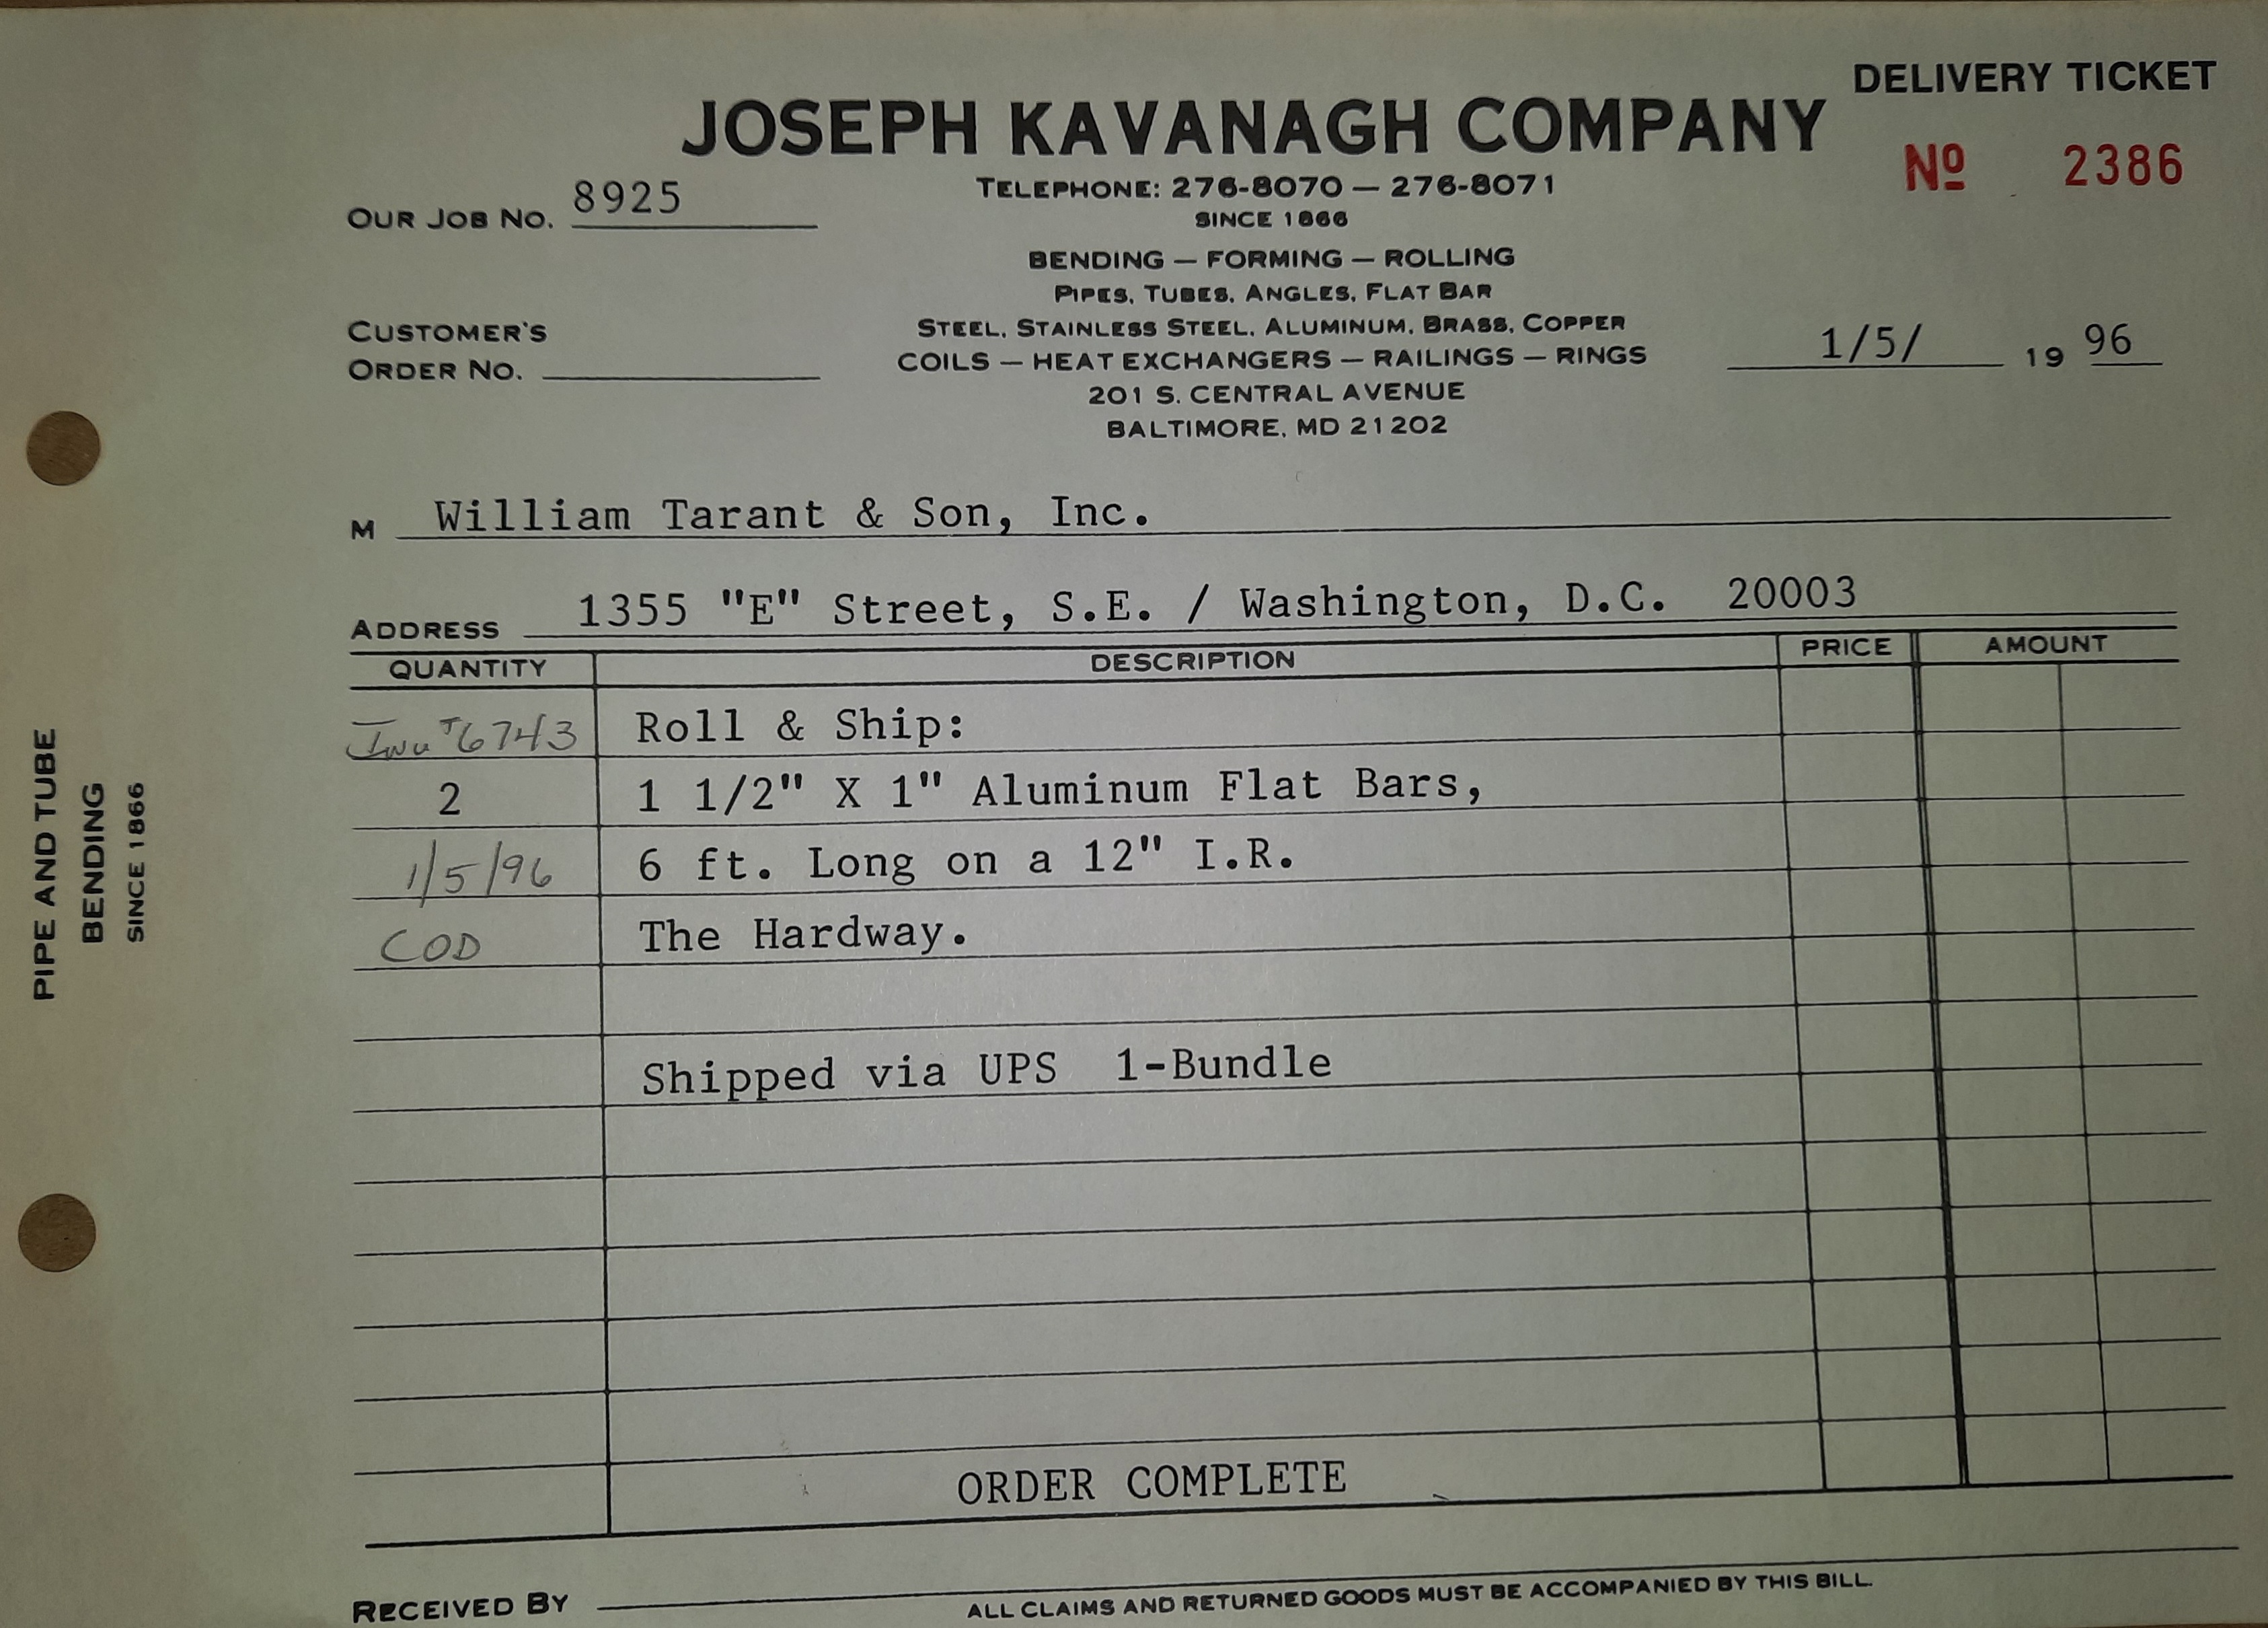 DELIVERY TICKET
JOSEPH KAVANAGH COMPANY
Nº 2386
TELEPHONE: 276-8070 — 276-8071
OUR JOB NO. 8925
SINCE 1866
BENDING — FORMING — ROLLING
PIPES, TUBES, ANGLES, FLAT BAR
CUSTOMER'S
ORDER NO.
STEEL, STAINLESS STEEL, ALUMINUM, BRASS, COPPER
COILS — HEAT EXCHANGERS — RAILINGS — RINGS
1/5/ 19 96
201 S. CENTRAL AVENUE
BALTIMORE, MD 21202
M William Tarant & Son, Inc.
ADDRESS 1355 "E" Street, S.E. / Washington, D.C. 20003
QUANTITY DESCRIPTION PRICE AMOUNT
Inv #6743 Roll & Ship:
2 1 1/2" X 1" Aluminum Flat Bars,
1/5/96 6 ft. Long on a 12" I.R.
COD The Hardway.
Shipped via UPS 1-Bundle
ORDER COMPLETE
RECEIVED BY
ALL CLAIMS AND RETURNED GOODS MUST BE ACCOMPANIED BY THIS BILL.
PIPE AND TUBE
BENDING
SINCE 1866